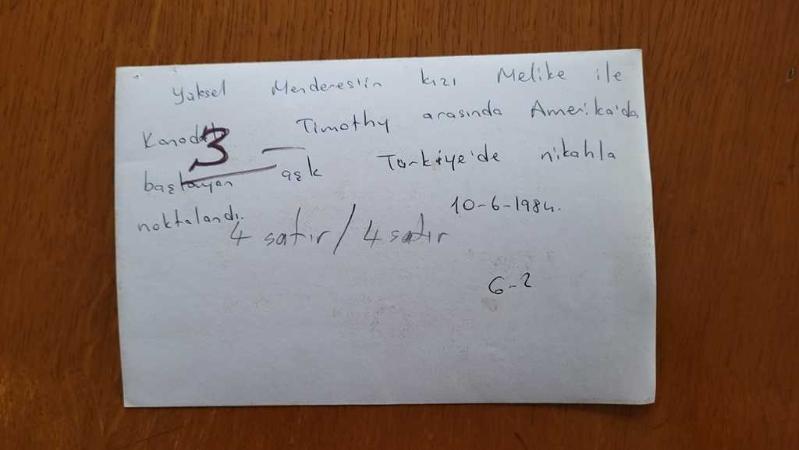 Yüksel Menderes'in kızı Melike ile
Kanadalı Timothy arasında Amerika'da
3
başlayan aşk Türkiye'de nikahla
noktalandı. 10-6-1984.
4 satır / 4 satır
G-2